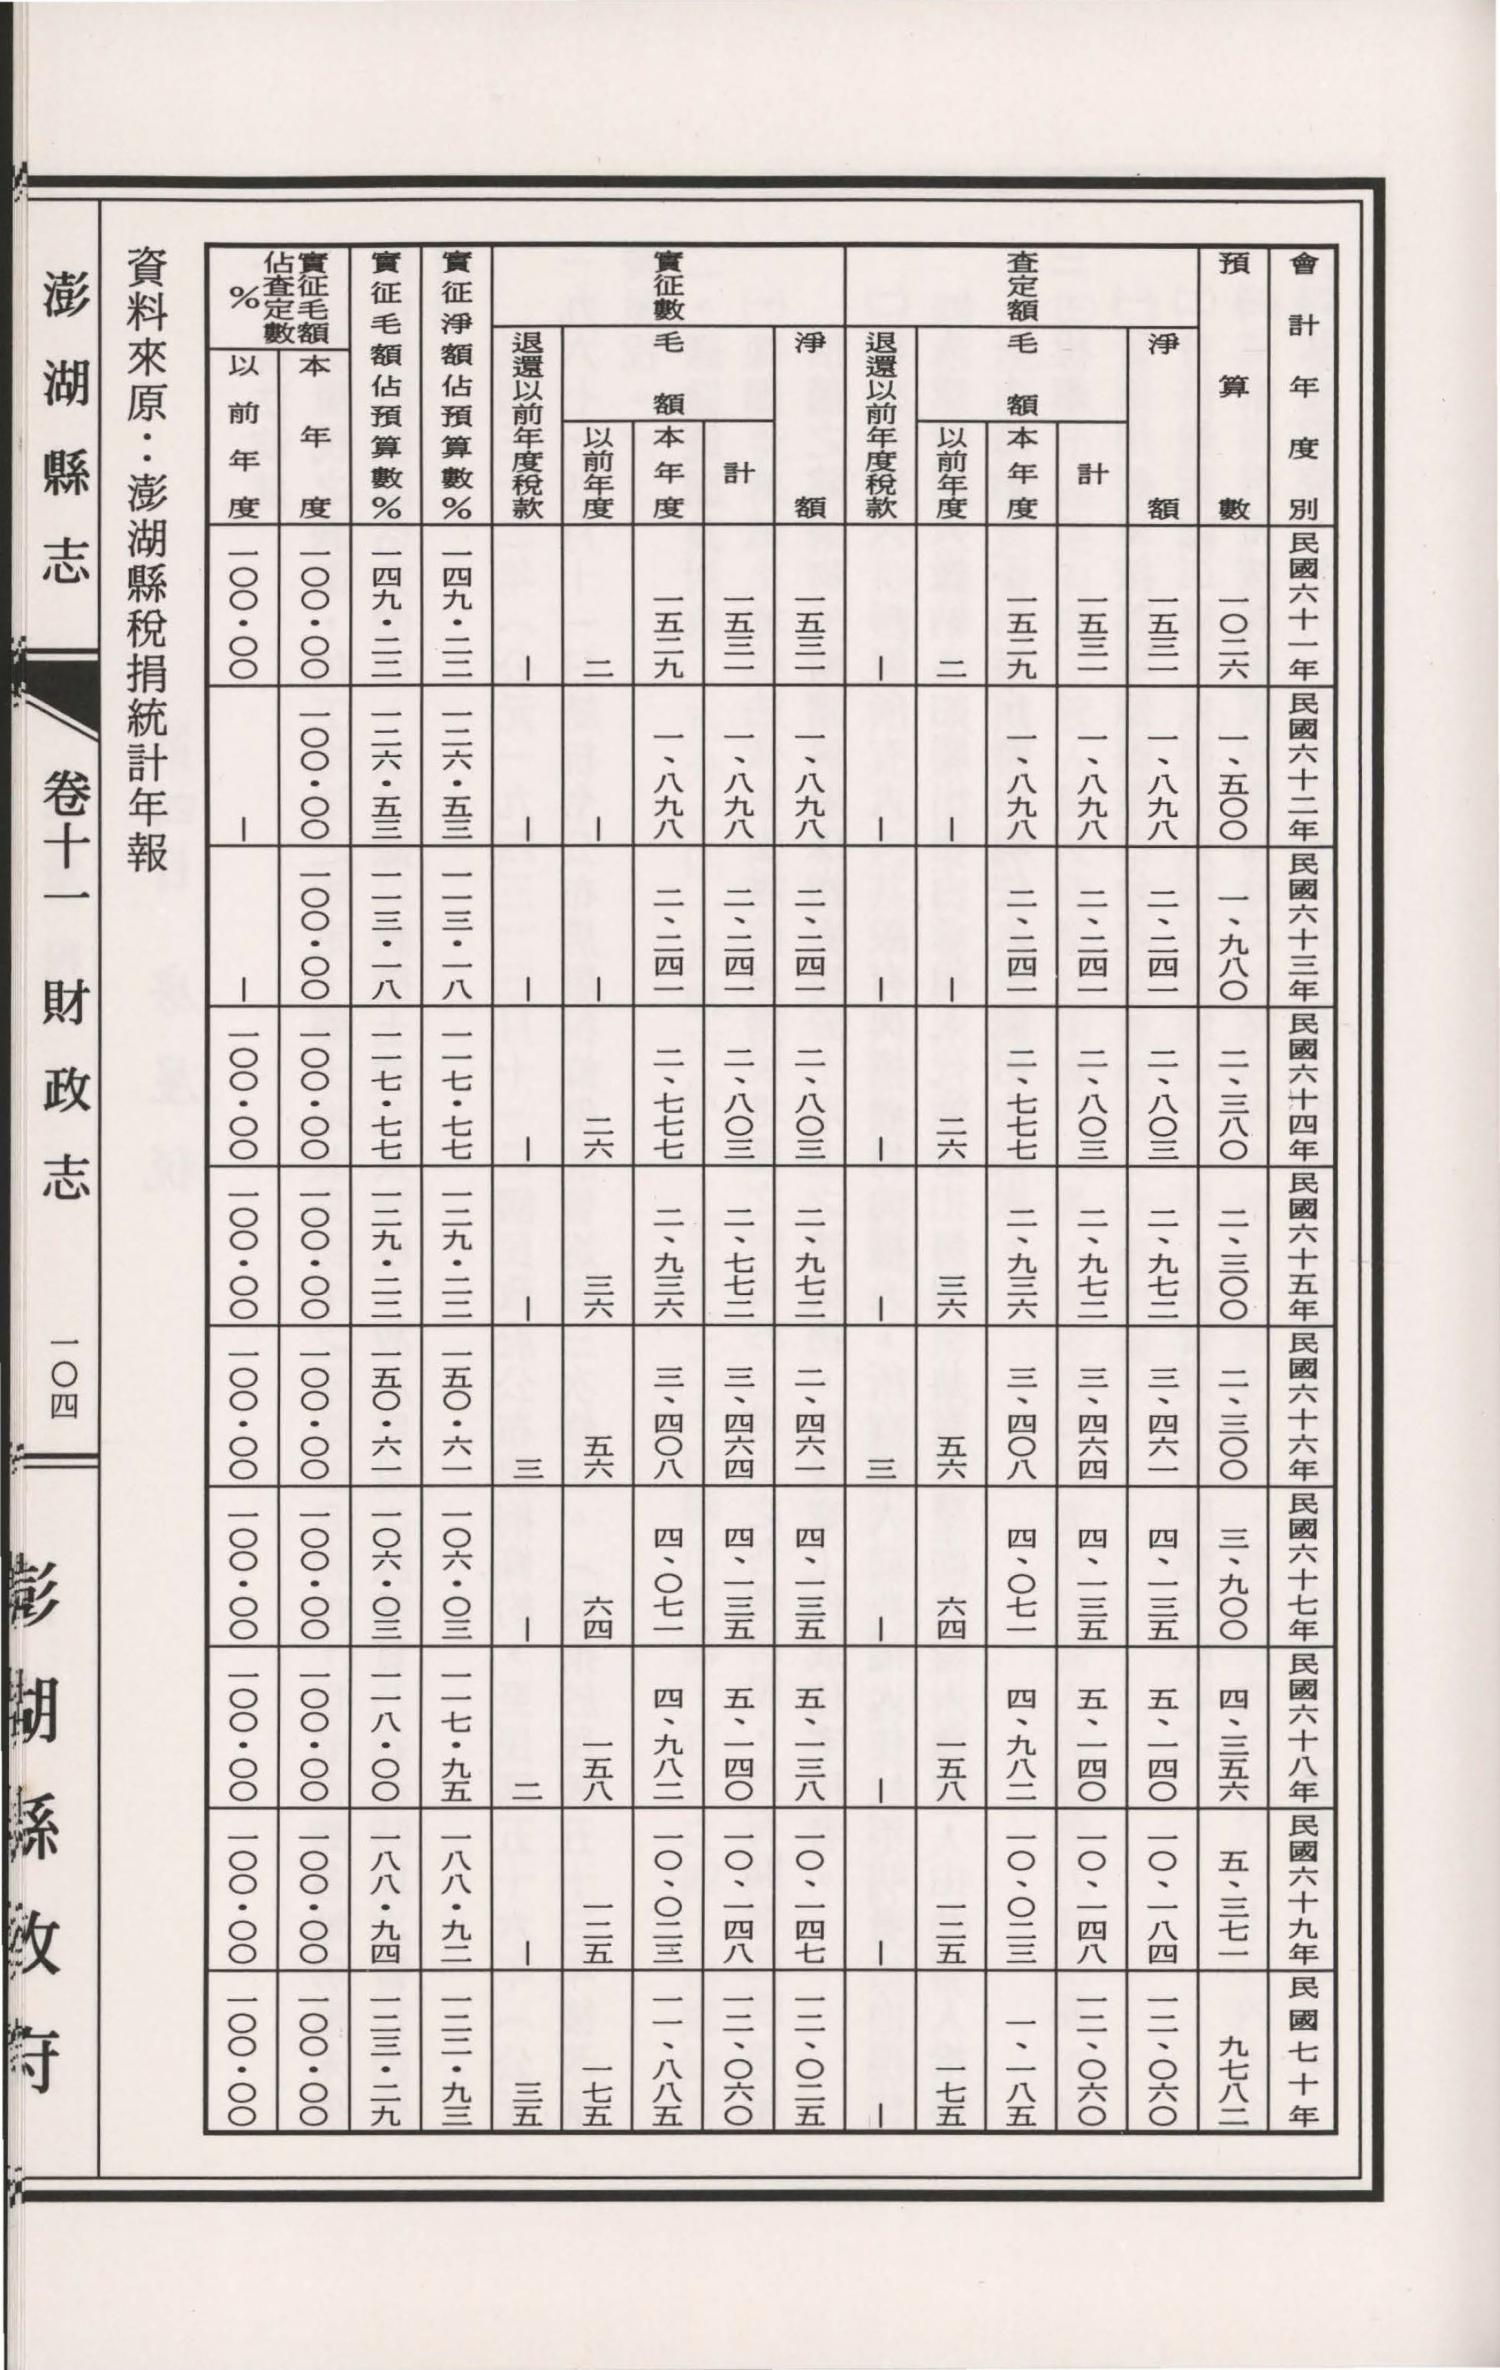 會計年度別 民國六十一年 民國六十二年 民國六十三年 民國六十四年 民國六十五年 民國六十六年 民國六十七年 民國六十八年 民國六十九年 民國七十年
預算數 一〇二六 一、五〇〇 一、九八〇 二、三八〇 二、三〇〇 二、三〇〇 三、九〇〇 四、三五六 五、三七一 九七八二
查定額
淨額 一五三一 一、八九八 二、二四一 二、八〇三 二、九七二 三、四六一 四、一三五 五、一四〇 一〇、一八四 一二、〇六〇
毛額
計 一五三一 一、八九八 二、二四一 二、八〇三 二、九七二 三、四六四 四、一三五 五、一四〇 一〇、一四八 一二、〇六〇
本年度 一五二九 一、八九八 二、二四一 二、七七七 二、九三六 三、四〇八 四、〇七一 四、九八二 一〇、〇二三 一、一八五
以前年度 二 — — 二六 三六 五六 六四 一五八 一二五 一七五
退還以前年度稅款 — — — — — 三 — — — —
實征數
淨額 一五三一 一、八九八 二、二四一 二、八〇三 二、九七二 二、四六一 四、一三五 五、一三八 一〇、一四七 一二、〇二五
毛額
計 一五三一 一、八九八 二、二四一 二、八〇三 二、七七二 三、四六四 四、一三五 五、一四〇 一〇、一四八 一二、〇六〇
本年度 一五二九 一、八九八 二、二四一 二、七七七 二、九三六 三、四〇八 四、〇七一 四、九八二 一〇、〇二三 一一、八八五
以前年度 二 — — 二六 三六 五六 六四 一五八 一二五 一七五
退還以前年度稅款 — — — — — 三 — 二 — 三五
實征淨額佔預算數% 一四九・二二 一二六・五三 一一三・一八 一一七・七七 一二九・二二 一五〇・六一 一〇六・〇三 一一七・九五 一八八・九二 一二二・九三
實征毛額佔預算數% 一四九・二二 一二六・五三 一一三・一八 一一七・七七 一二九・二二 一五〇・六一 一〇六・〇三 一一八・〇〇 一八八・九四 一二三・二九
實征毛額佔查定數%
本年度 一〇〇・〇〇 一〇〇・〇〇 一〇〇・〇〇 一〇〇・〇〇 一〇〇・〇〇 一〇〇・〇〇 一〇〇・〇〇 一〇〇・〇〇 一〇〇・〇〇 一〇〇・〇〇
以前年度 一〇〇・〇〇 — — 一〇〇・〇〇 一〇〇・〇〇 一〇〇・〇〇 一〇〇・〇〇 一〇〇・〇〇 一〇〇・〇〇 一〇〇・〇〇
資料來原：澎湖縣稅捐統計年報
澎湖縣志 卷十一 財政志 一〇四 澎湖縣政府